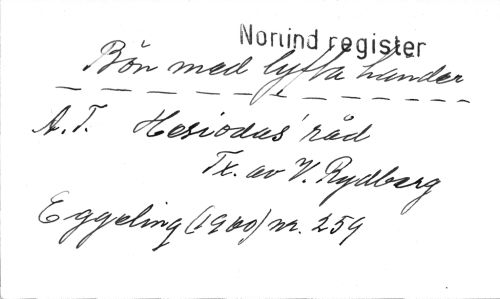 Norlind register
Bön med lyfta händer
A.T. Hesiodus' råd
Tx. av V. Rydberg
Eggeling (1900) nr. 259